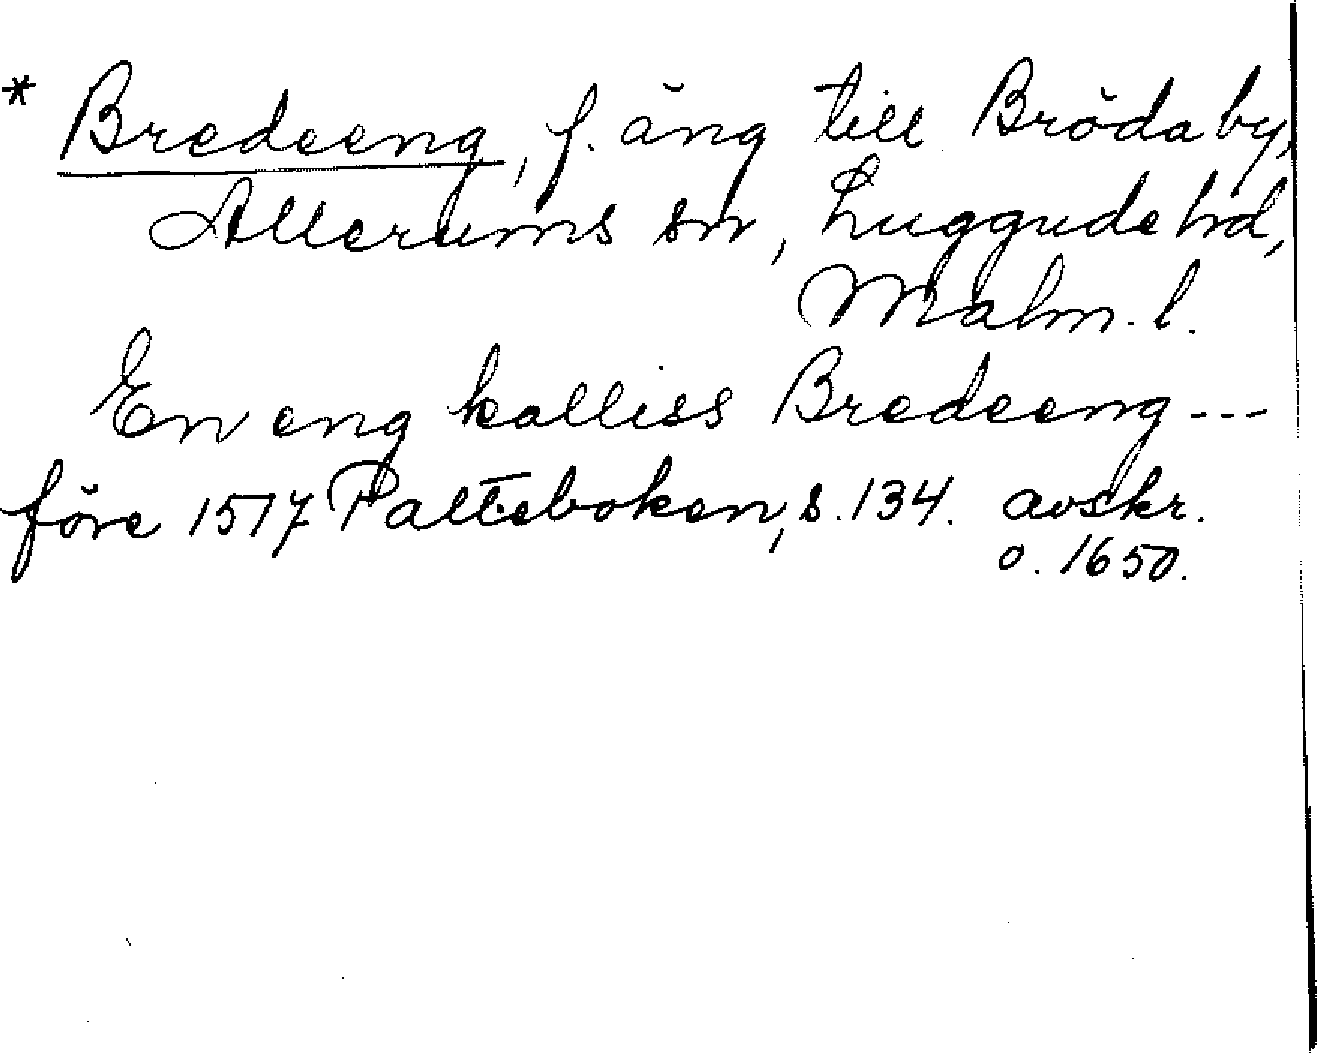 * Bredeeng, f. äng till Bröda by,
Allerums sn, Luggude hd,
Malm. l.
En eng kalliss Bredeeng ---
före 1517 Palteboken, s. 134. avskr.
o. 1650.